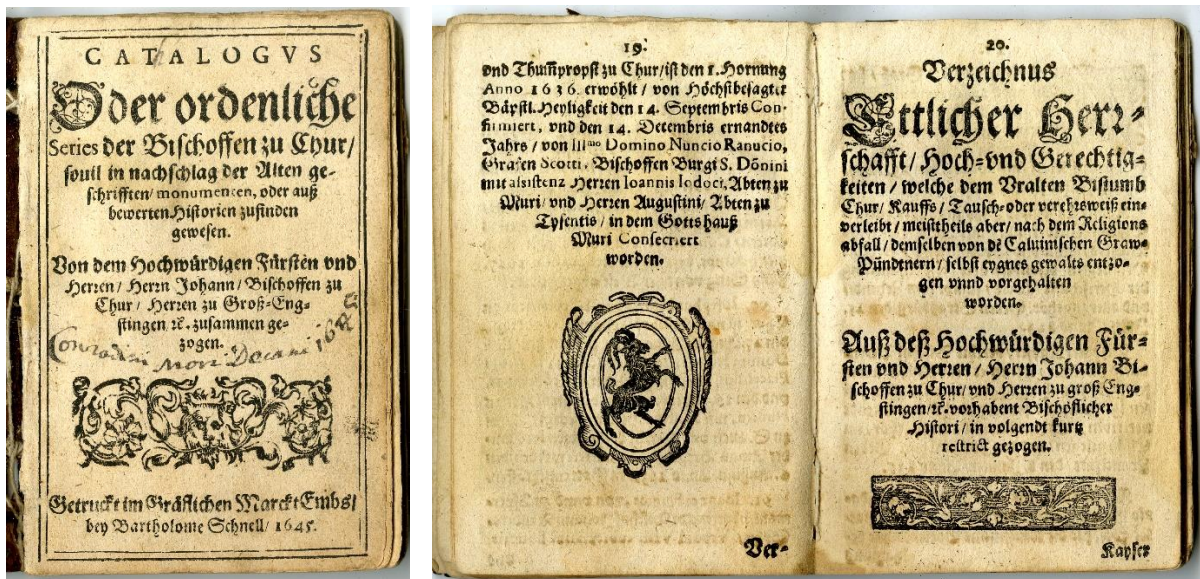 CATALOGVS
Oder ordenliche
Series der Bischoffen zu Chur/
souil in nachschlag der Alten ge-
schrifften/ monumenten, oder auß
bewerten Historien zufinden
gewesen.
Von dem Hochwürdigen Fürsten vnd
Herren/ Herrn Johann/ Bischoffen zu
Chur/ Herren zu Groß-Eng-
stingen ꝛc. zusammen ge-
zogen.
Getruckt im Gräflichen Marckt Embs/
bey Bartholome Schnell/ 1645.
19.
vnd Thum̄propst zu Chur/ ist den 1. Hornung
Anno 1636. erwöhlt/ von Höchstbesagter
Bäpstl. Heyligkeit den 14. Septembris Con-
firmiert, vnd den 14. Decembris ernandtes
Jahrs/ von Illmo Domino Nuncio Ranucio,
Grafen Scotti, Bischoffen Burgi S. Dōnini
mit assistenz Herren Ioannis Iodoci, Abten zu
Muri/ vnd Herren Augustini/ Abten zu
Tysentis/ in dem Gottshauß
Muri Consecriert
worden.
Ver-
20.
Verzeichnus
Ettlicher Herr-
schafft/ Hoch- vnd Gerechtig-
keiten/ welche dem Vralten Bistumb
Chur/ Kauffs/ Tausch- oder verehrsweiß ein-
verleibt/ meisttheils aber/ nach dem Religions
abfall/ demselben von dē Caluinischen Graw-
Pündtnern/ selbst eygnes gewalts entzo-
gen vnnd vorgehalten
worden.
Auß deß Hochwürdigen Für-
sten vnd Herren/ Herrn Johann Bi-
schoffen zu Chur/ vnd Herren zu groß Eng-
stingen/ ꝛc. vorhabent Bischöflicher
Histori/ in volgendt kurtz
restrict gezogen.
Kayser